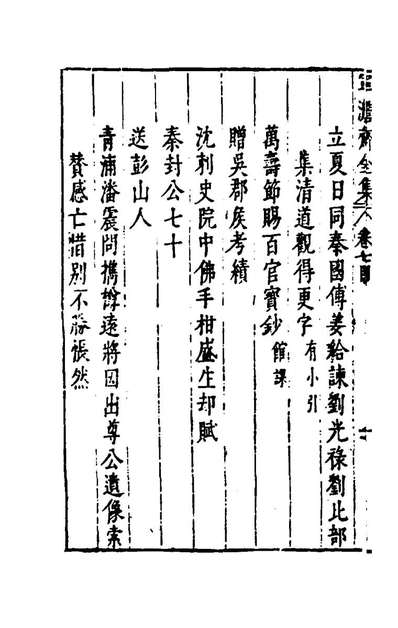 澹齋全集 卷七目
立夏日同秦國傅姜給諫劉光祿劉比部
集清道觀得更字有小引
萬壽節賜百官寶鈔館課
贈吳郡侯考績
沈刺史院中佛手柑盛生却賦
秦封公七十
送彭山人
青浦潘震問攜樽遠將因出尊公遺像索
贊感亡惜別不勝悵然